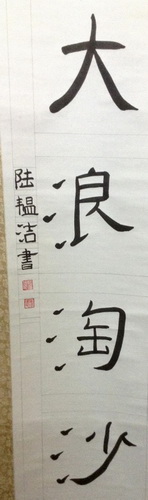 大浪淘沙
陆韫洁書